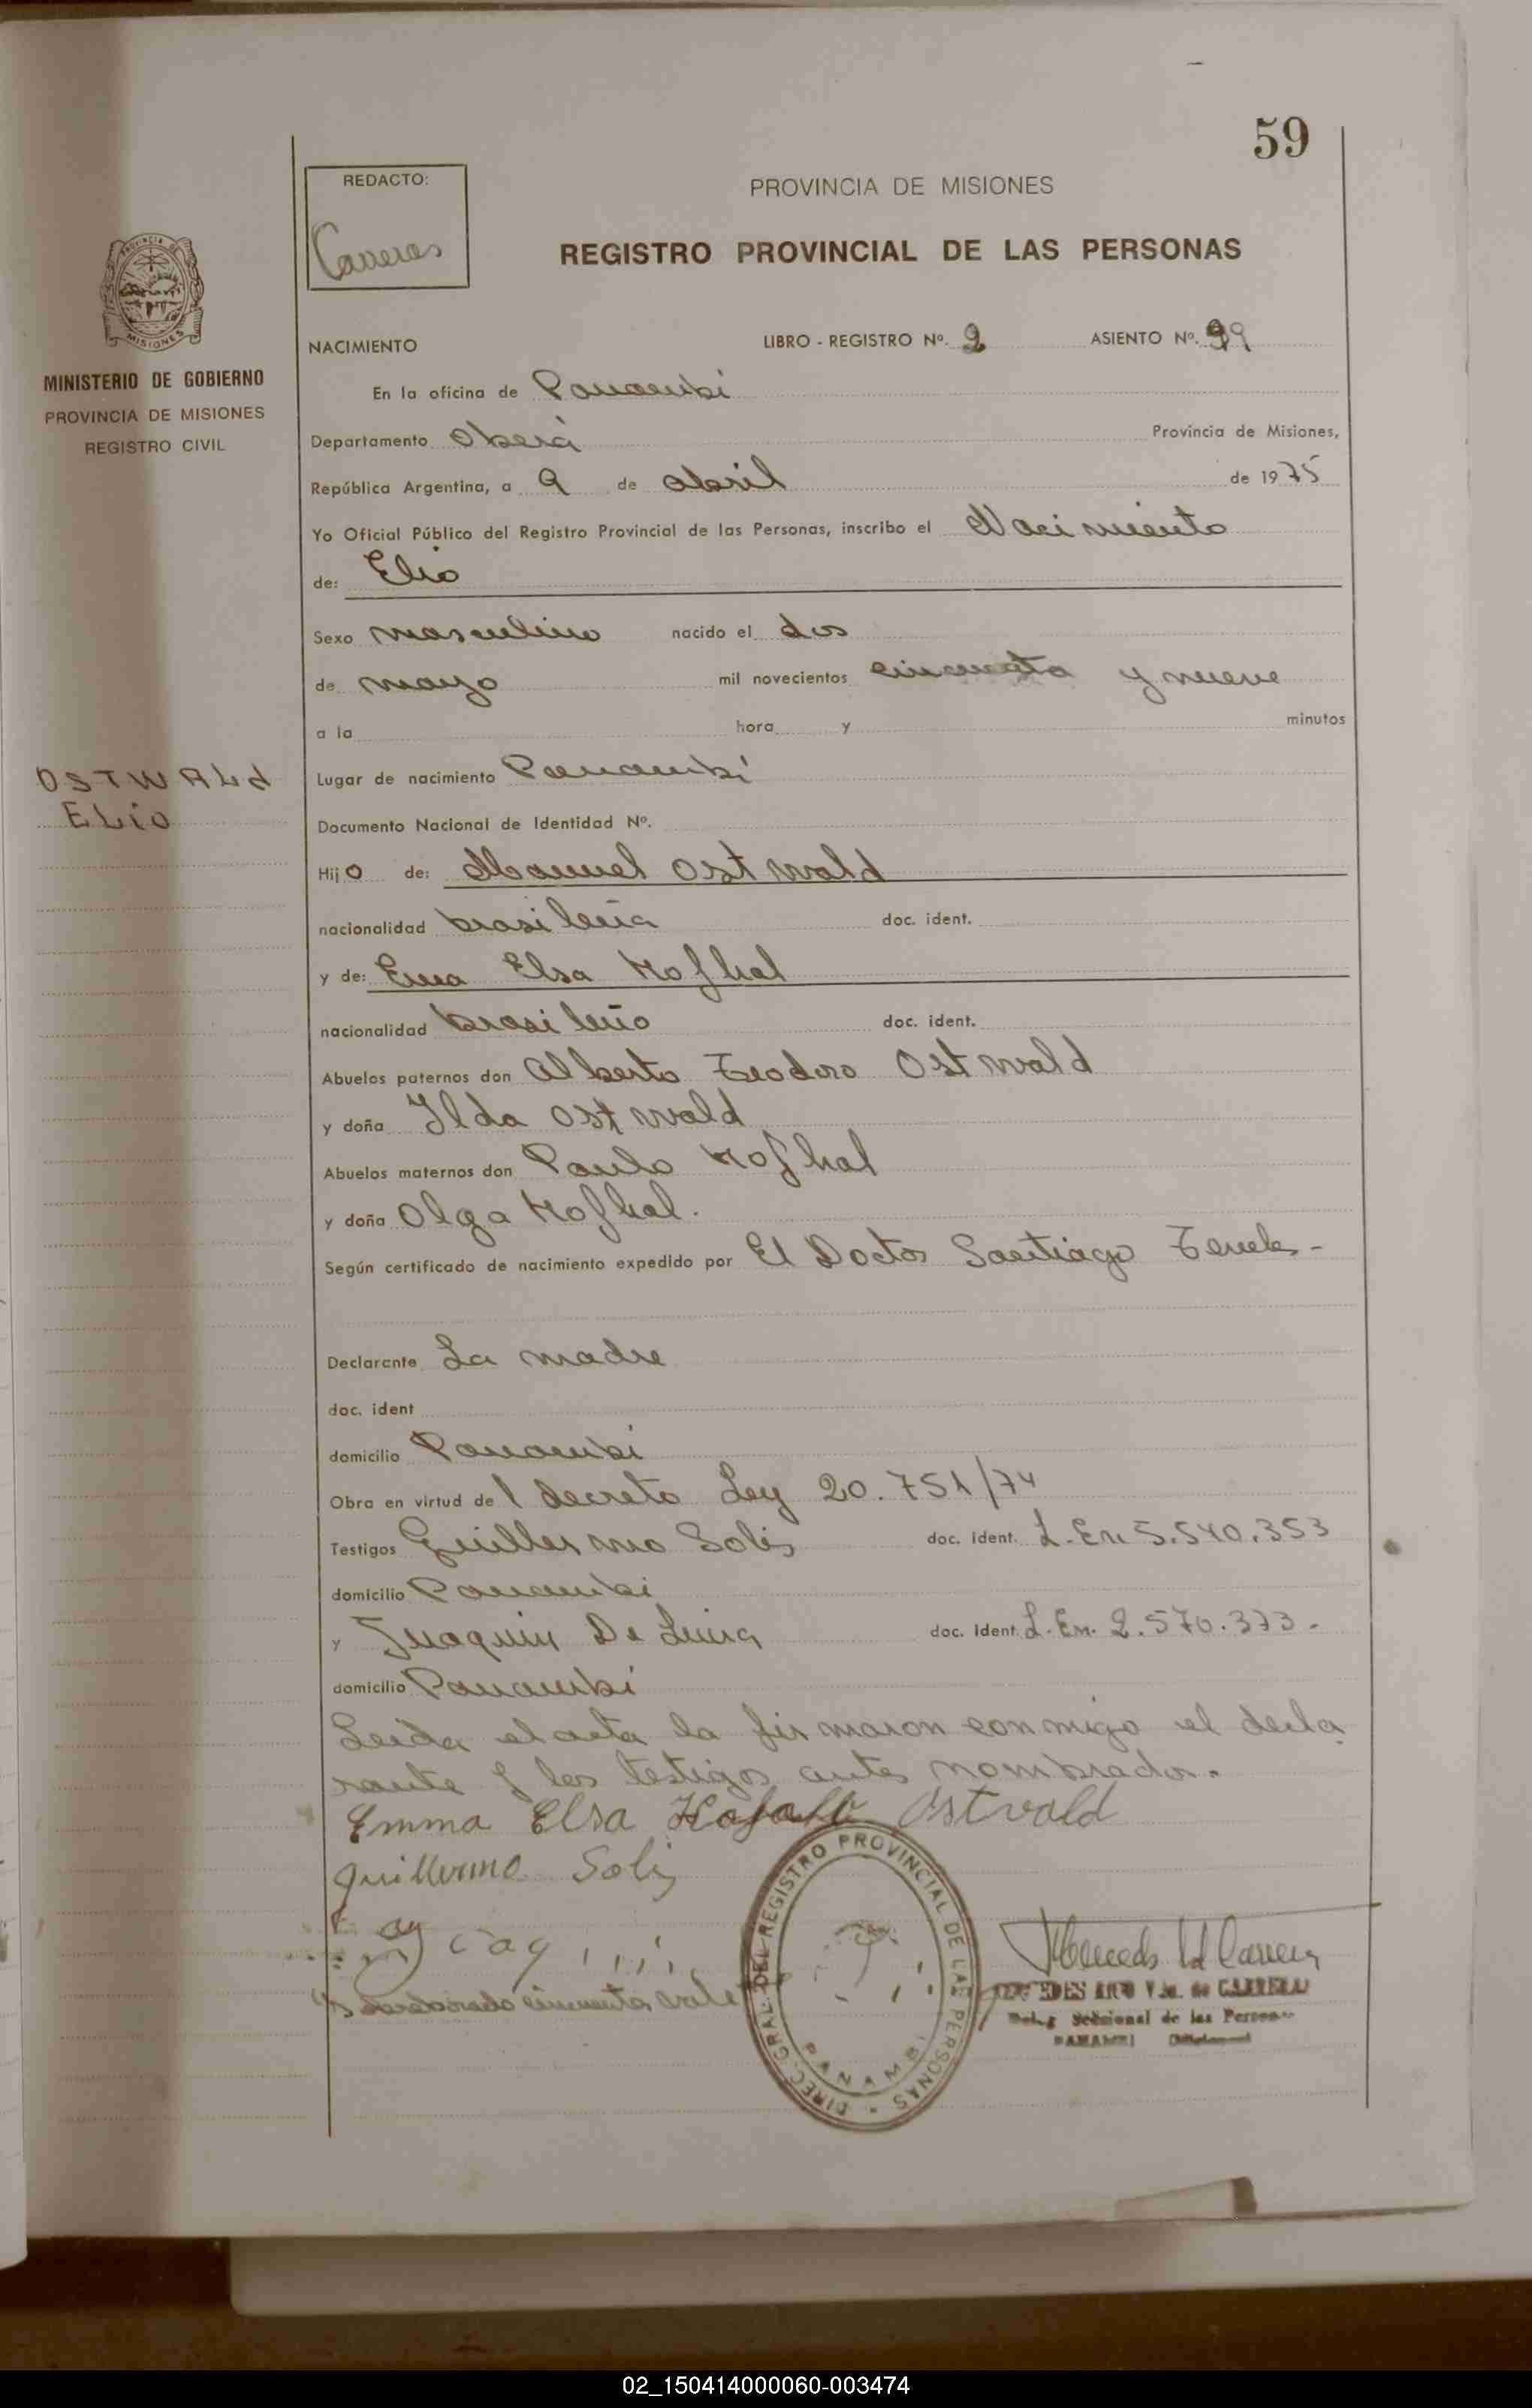 59
REDACTO:
Carreras
PROVINCIA DE MISIONES
REGISTRO PROVINCIAL DE LAS PERSONAS
PROVINCIA DE
MISIONES
MINISTERIO DE GOBIERNO
PROVINCIA DE MISIONES
REGISTRO CIVIL
NACIMIENTO LIBRO - REGISTRO Nº. 2 ASIENTO Nº. 99
En la oficina de Panambí
Departamento Oberá Provincia de Misiones,
República Argentina, a 9 de abril de 1975
Yo Oficial Público del Registro Provincial de las Personas, inscribo el Nacimiento
de: Elio
Sexo masculino nacido el dos
de mayo mil novecientos cincuenta y nueve
a la hora y minutos
OSTWALd
ELiO
Lugar de nacimiento Panambí
Documento Nacional de Identidad Nº.
Hijo de: Manuel Ostwald
nacionalidad brasileña doc. ident.
y de: Ema Elsa Hofhal
nacionalidad brasileño doc. ident.
Abuelos paternos don Alberto Teodoro Ostwald
y doña Ilda Ostwald
Abuelos maternos don Paulo Hofhal
y doña Olga Hofhal.
Según certificado de nacimiento expedido por El Doctor Santiago
Declarante La madre
doc. ident
domicilio Panambí
Obra en virtud del decreto Ley 20.751/74
Testigos Guillermo Solis doc. ident. L. En 5.540.353
domicilio Panambi
y Juaquin De Lima doc. ident. L. En. 2.570.373.-
domicilio Panambí
Leida el acta la firmaron conmigo el decla
rante y los testigos antes nombrados.
Emma Elsa Ostvald
Guillermo Solis
cincuenta vale
DIREC. GRAL. DEL REGISTRO PROVINCIAL DE LAS PERSONAS -
PANAMBI
Vda. de CARRERAS
Seccional de las Personas
PANAMBI
02_150414000060-003474